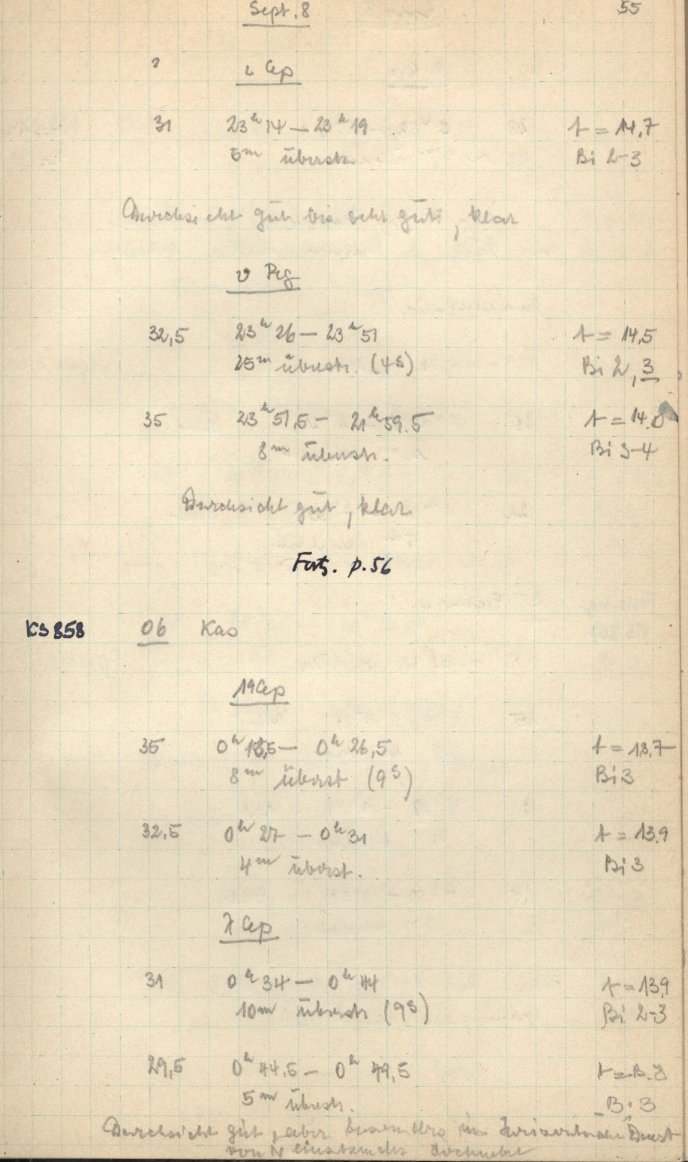 Sept. 8 55
ι Cep
31 23ʰ14 – 23ʰ19 t = 14,7
5ᵐ überstr. Bi 2-3
Durchsicht gut bis sehr gut, klar
υ Peg
32,5 23ʰ26 – 23ʰ51 t = 14,5
25ᵐ überstr. (4ˢ) Bi 2, 3
35 23ʰ51,5 – 21ʰ59.5 t = 14.0
8ᵐ überstr. Bi 3-4
Durchsicht gut, klar
Forts. p. 56
KS 858 Ob Kao
19 Cep
35 0ʰ18,5 – 0ʰ26,5 t = 13,7
8ᵐ überst (9ˢ) Bi 3
32,5 0ʰ27 – 0ʰ31 t = 13,9
4ᵐ überst. Bi 3
λ Cep
31 0ʰ34 – 0ʰ44 t = 13,9
10ᵐ überstr (9ˢ) Bi 2-3
29,5 0ʰ44.5 – 0ʰ49,5
5ᵐ überstr. Bi 3
Durchsicht gut, aber besonders im Dunst
von N